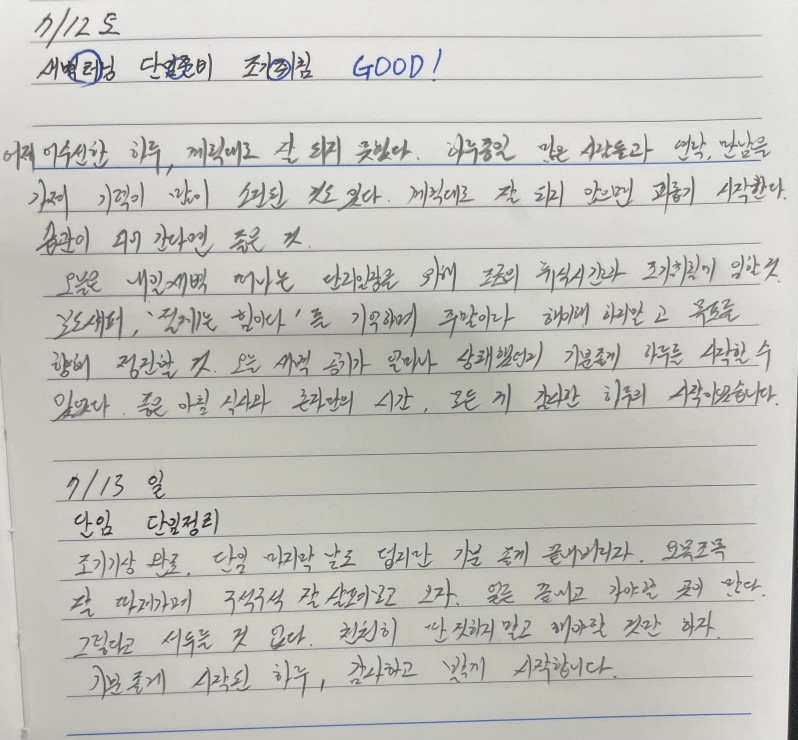 7/12 토
새벽러닝 단일준비 조기취침 GOOD!
어제 어수선한 하루, 계획대로 잘 되지 못했다. 하루종일 많은 사람들과 연락, 만남을
가져 기력이 많이 소진된 것도 있다. 계획대로 잘 되지 않으면 괴롭기 시작한다.
습관이 되어 간다면 좋은 것.
오늘은 내일 새벽 떠나는 단일을 위해 조금의 휴식시간과 조기취침이 임할 것.
'절제는 힘이다'를 기억하며 주말이라 해이해 하지말고 목표를
향해 정진할 것. 오늘 새벽 공기가 얼마나 상쾌했던지 기분좋게 하루를 시작할 수
있었다. 좋은 아침 식사와 혼자만의 시간, 모든 게 감사한 하루의 시작이었습니다.
7/13 일
단임 단일정리
조기기상 완료. 단일 마지막 날로 덥지만 기분 좋게 끝내버리자. 오목조목
잘 따져가며 구석구석 잘 살펴보고 오자. 일은 끝내고 가야할 곳이 많다.
그렇다고 서두를 것 없다. 천천히 딴 짓하지 말고 해야할 것만 하자.
기분 좋게 시작된 하루, 감사하고 밝게 시작합니다.